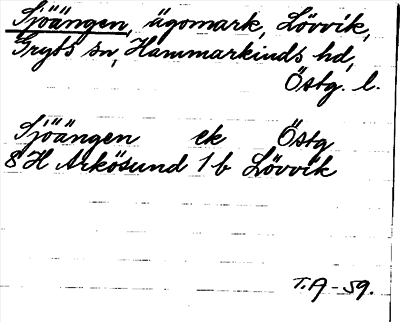 Sjöängen, ägomark, Lövvik,
Gryts sn, Hammarkinds hd,
Östg. l.
Sjöängen ek Östg
8 H Arkösund 1 b Lövvik
T.A-59.